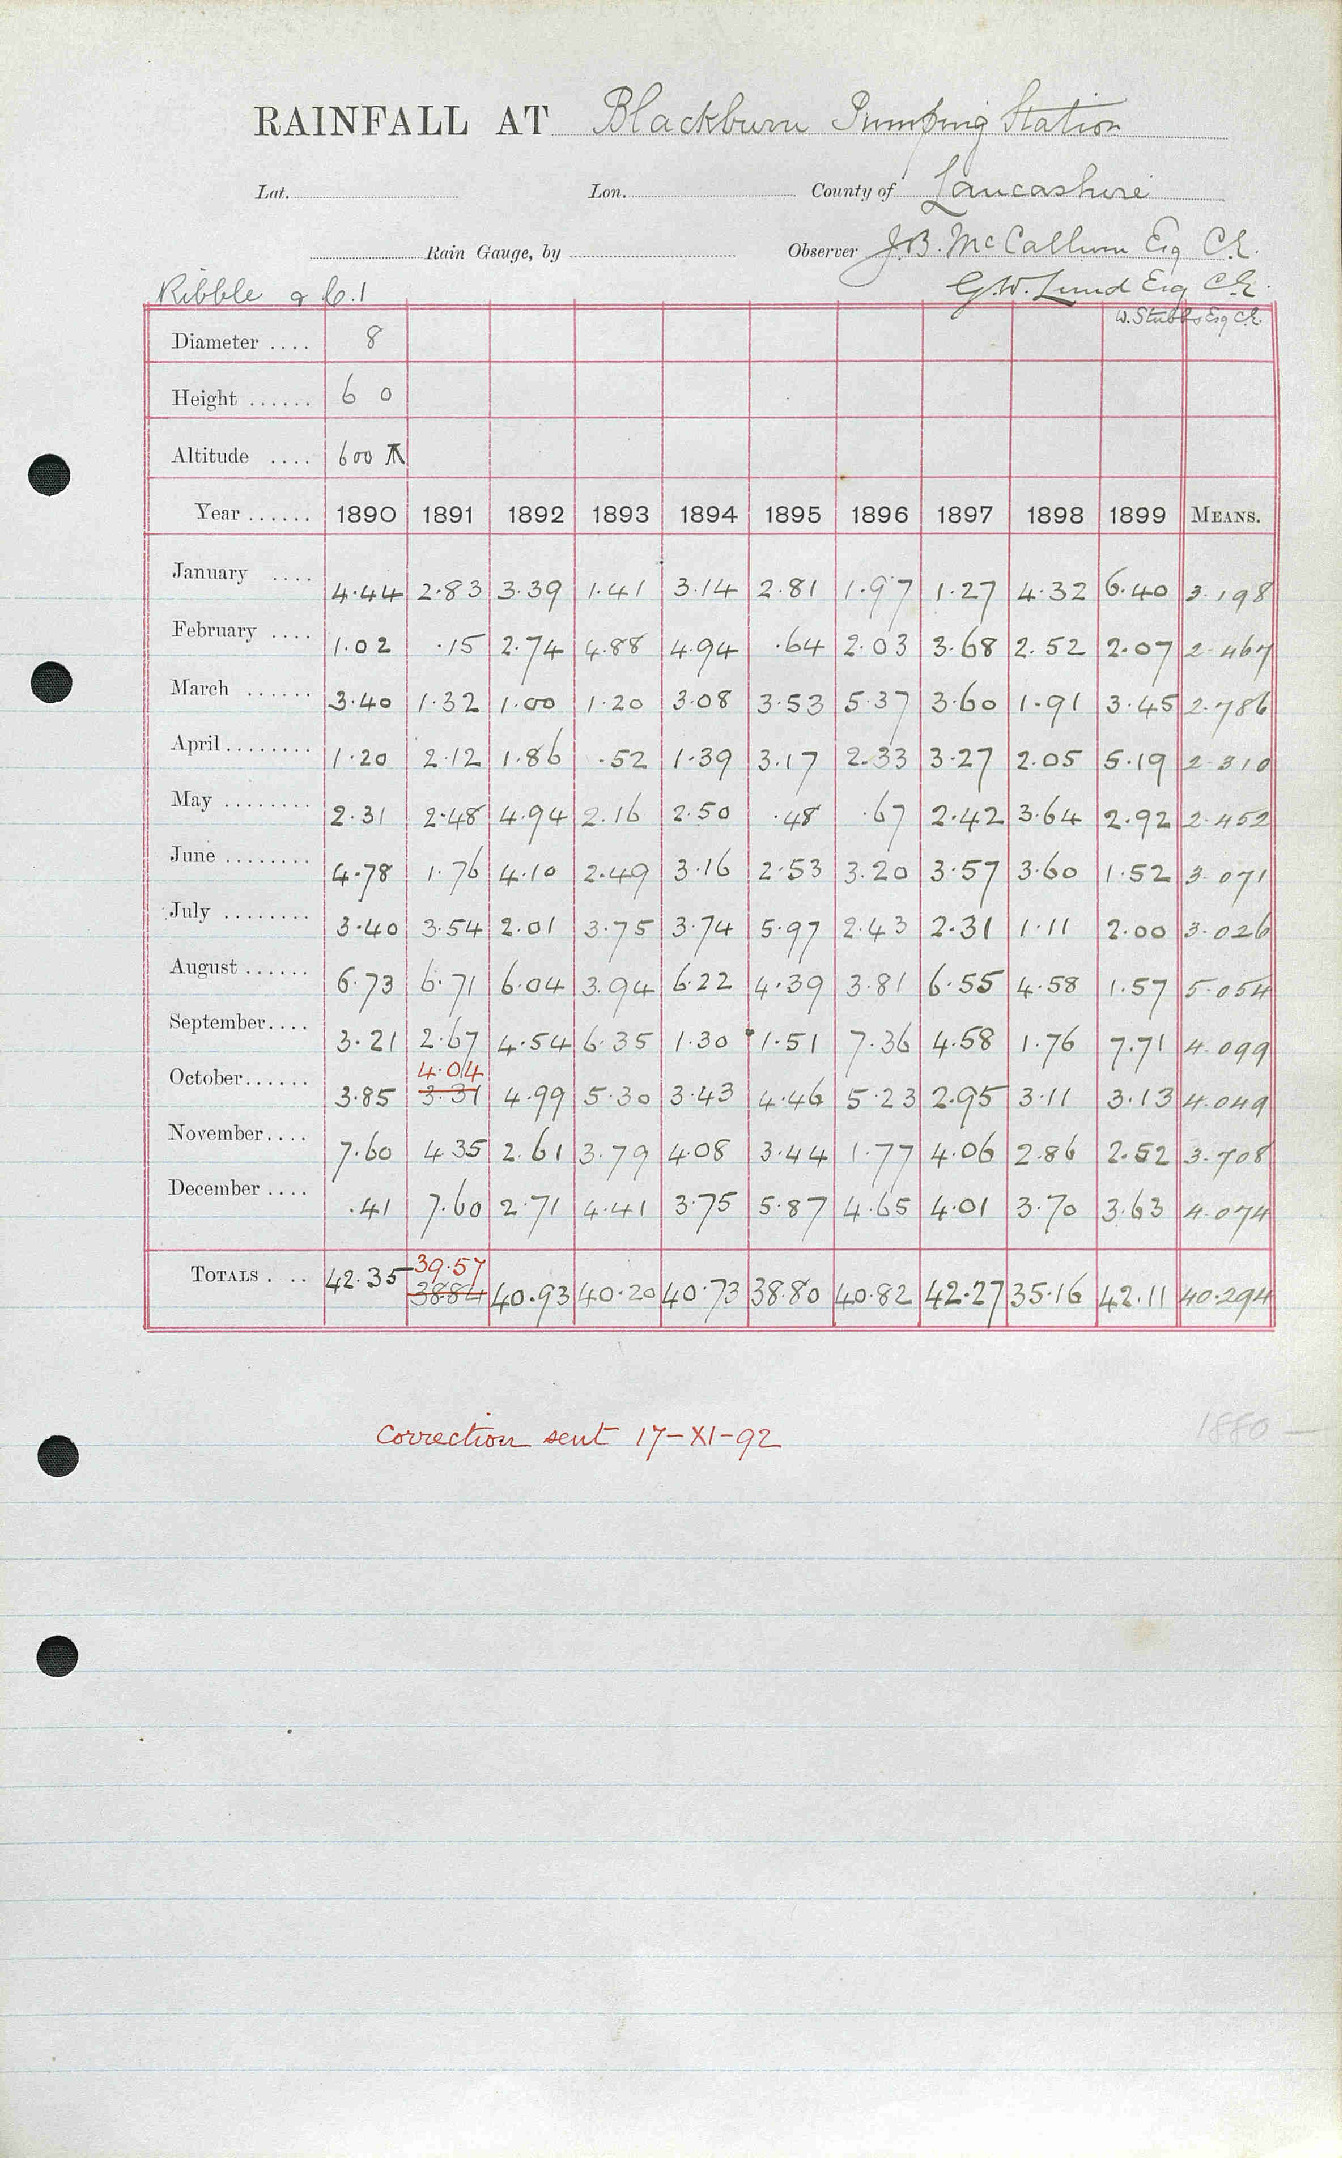 RAINFALL AT Blackburn Pumping Station
Lat. Lon. County of Lancashire
Rain Gauge, by Observer J.B. McCallum Esq C.E.
Ribble & C.1 G.W. Lund Esq C.E.
W. Stubbs Esq C.E.
Diameter .... 8
Height ...... 6 0
Altitude .... 600
Year ...... 1890 1891 1892 1893 1894 1895 1896 1897 1898 1899 MEANS.
January .... 4.44 2.83 3.39 1.41 3.14 2.81 1.97 1.27 4.32 6.40 3.198
February .... 1.02 .15 2.74 4.88 4.94 .64 2.03 3.68 2.52 2.07 2.467
March ...... 3.40 1.32 1.00 1.20 3.08 3.53 5.37 3.60 1.91 3.45 2.786
April ........ 1.20 2.12 1.86 .52 1.39 3.17 2.33 3.27 2.05 5.19 2.310
May ........ 2.31 2.48 4.94 2.16 2.50 .48 .67 2.42 3.64 2.92 2.452
June ........ 4.78 1.76 4.10 2.49 3.16 2.53 3.20 3.57 3.60 1.52 3.071
July ........ 3.40 3.54 2.01 3.75 3.74 5.97 2.43 2.31 1.11 2.00 3.026
August ...... 6.73 6.71 6.04 3.94 6.22 4.39 3.81 6.55 4.58 1.57 5.054
September.... 3.21 2.67 4.54 6.35 1.30 1.51 7.36 4.58 1.76 7.71 4.099
4.04
October...... 3.85 3.31 4.99 5.30 3.43 4.46 5.23 2.95 3.11 3.13 4.049
November.... 7.60 4.35 2.61 3.79 4.08 3.44 1.77 4.06 2.86 2.52 3.708
December .... .41 7.60 2.71 4.41 3.75 5.87 4.65 4.01 3.70 3.63 4.074
39.57
TOTALS . .. 42.35 38.84 40.93 40.20 40.73 38.80 40.82 42.27 35.16 42.11 40.294
Correction sent 17-XI-92
1880 —